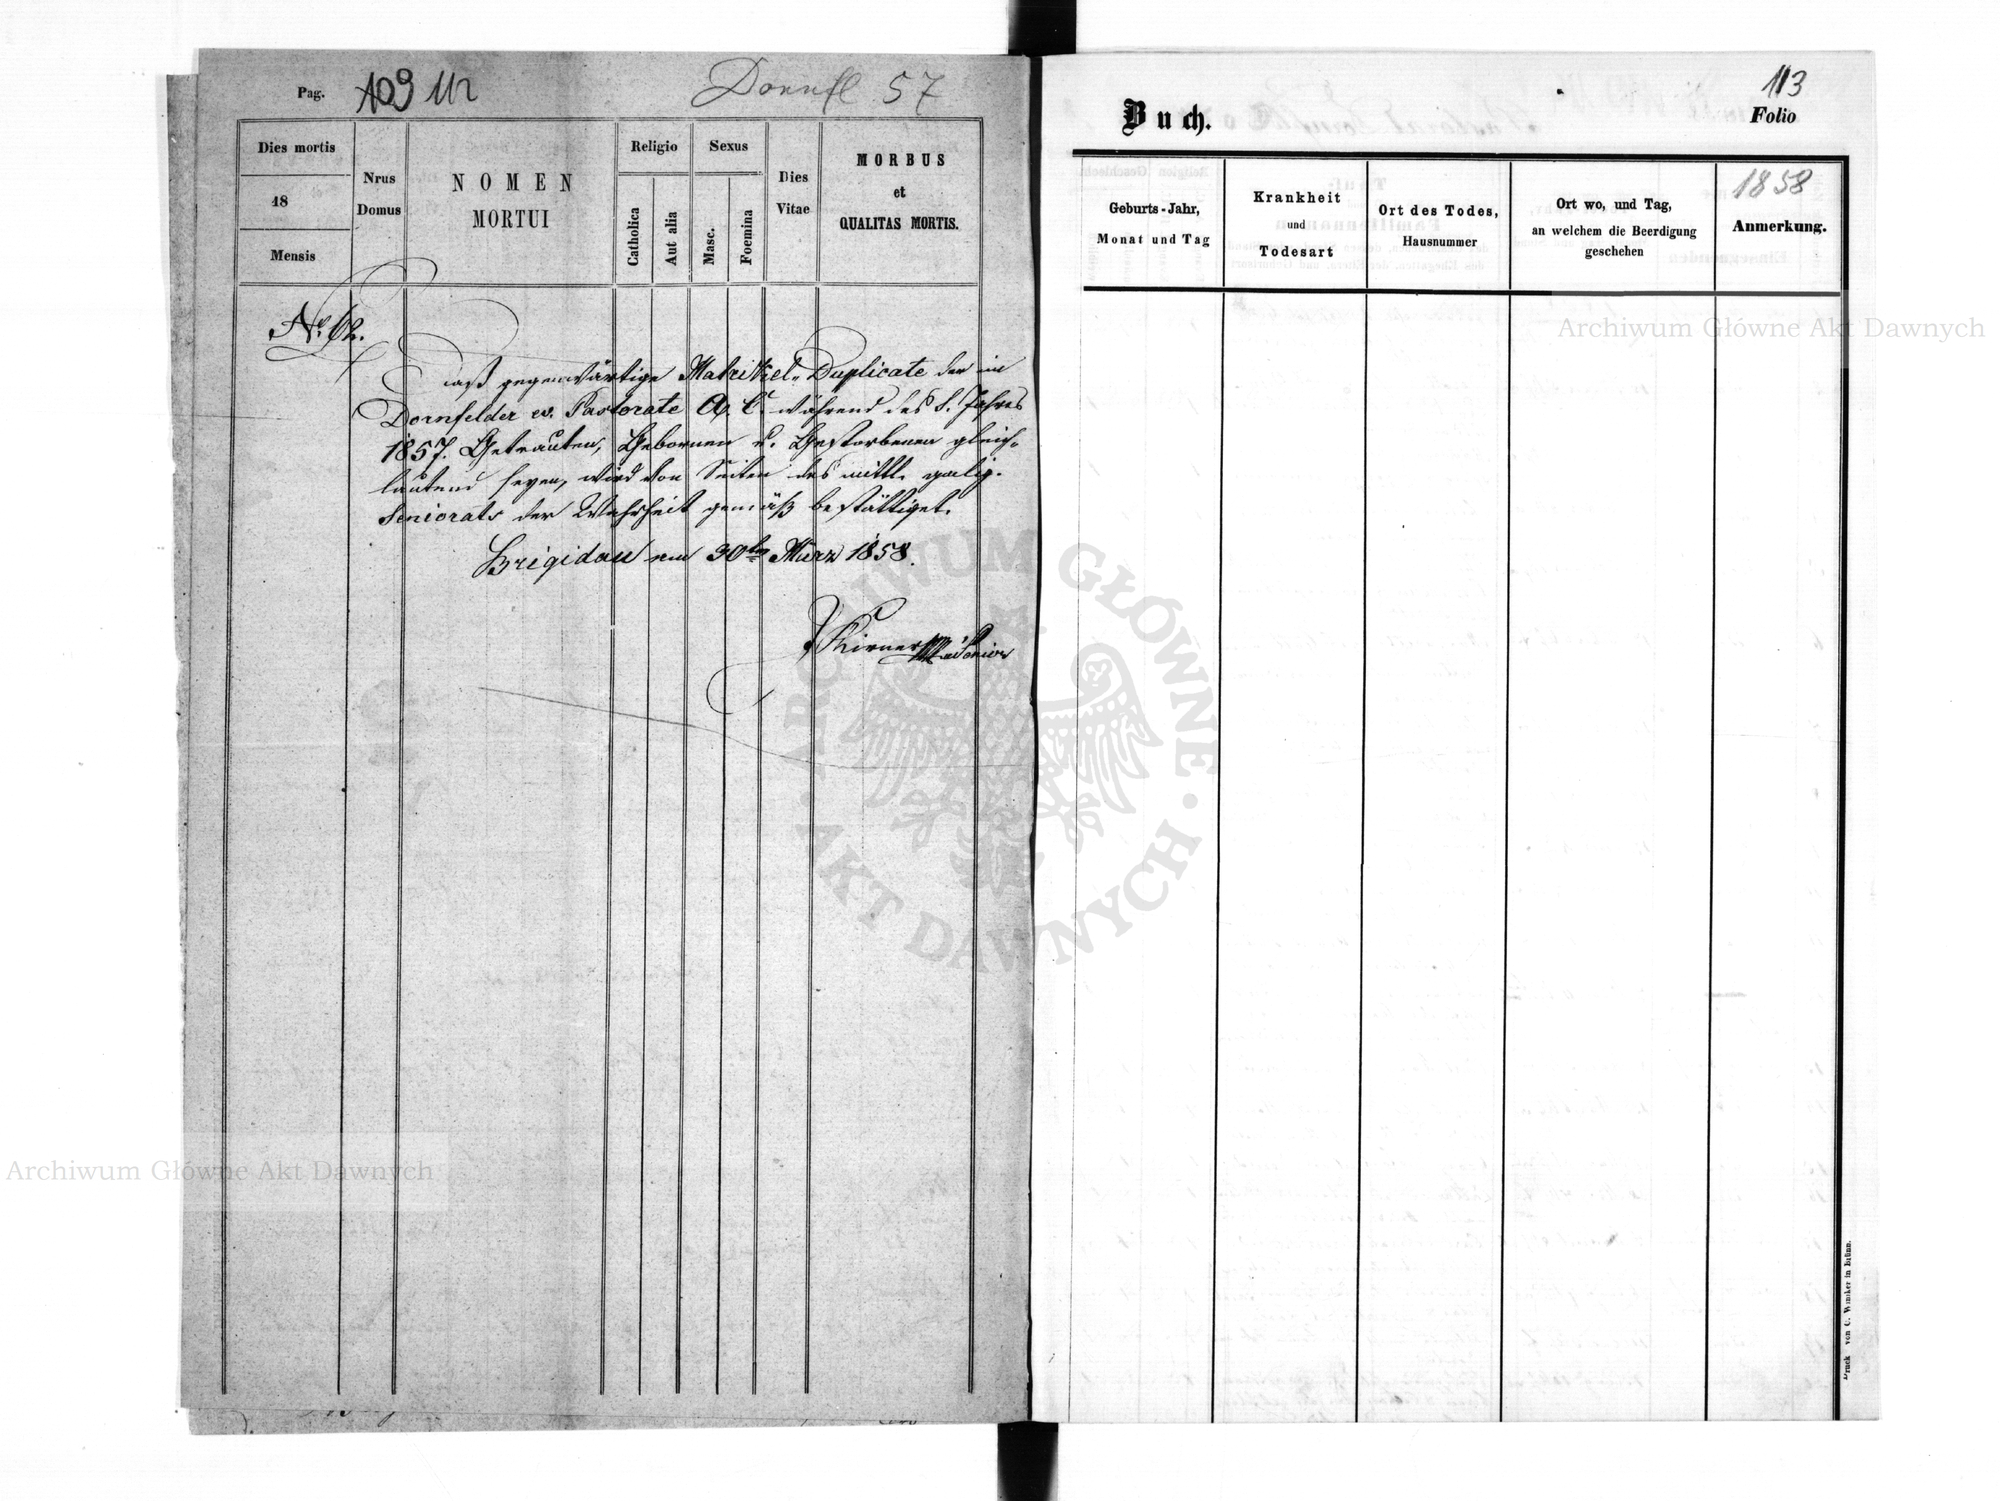 Pag. 109 112
Dornfl 57
Dies mortis
18
Mensis
Nrus
Domus
NOMEN
MORTUI
Religio
Catholica
Aut alia
Sexus
Masc.
Foemina
Dies
Vitae
MORBUS
et
QUALITAS MORTIS.
No. 62.
Daß gegenwärtige Matrikel-Duplicate der im
Dornfelder ev. Pastorate A. C. während des S. Jahres
1857. Getrauten, Gebornen u. Gestorbenen gleich-
lautend seyen, wird von Seiten des mittl. galiz.
Seniorats der Wahrheit gemäß bestättiget.
Brigidau am 30ten März 1858.
Kirner Senior
113
Buch.
Folio
1858
Geburts-Jahr,
Monat und Tag
Krankheit
und
Todesart
Ort des Todes,
Hausnummer
Ort wo, und Tag,
an welchem die Beerdigung
geschehen
Anmerkung.
Druck von C. Winiker in Brünn.
Archiwum Główne Akt Dawnych
Archiwum Główne Akt Dawnych
ARCHIWUM GŁÓWNE · AKT DAWNYCH ·